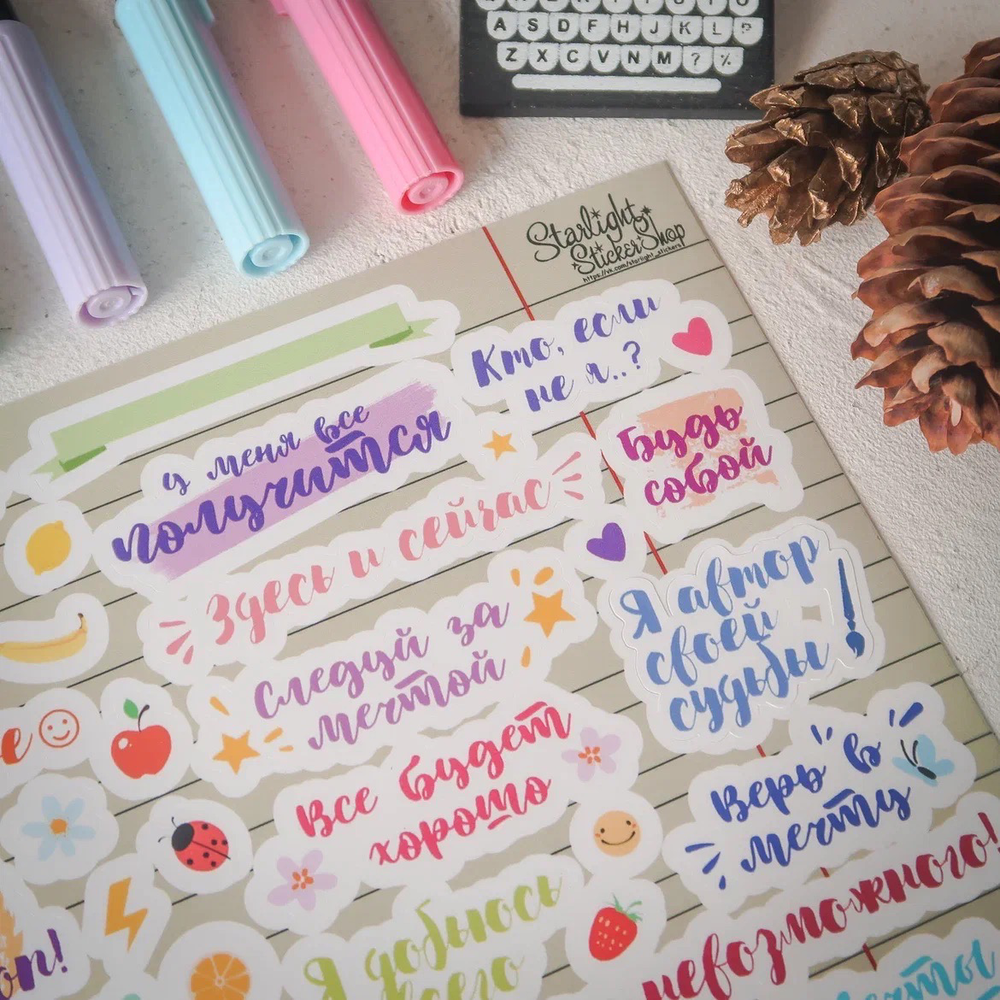 A S D F G H J K L P
Z X C V N M ? %
Starlight
StickerShop
https://vk.com/starlight_stickers
Кто, если
не я..?
у меня все
получится
Будь
собой
Здесь и сейчас
Я автор
своей
судьбы
!
Следуй за
мечтой
Все будет
хорошо
Верь в
мечту
невозможного!
Я добьюсь
всего